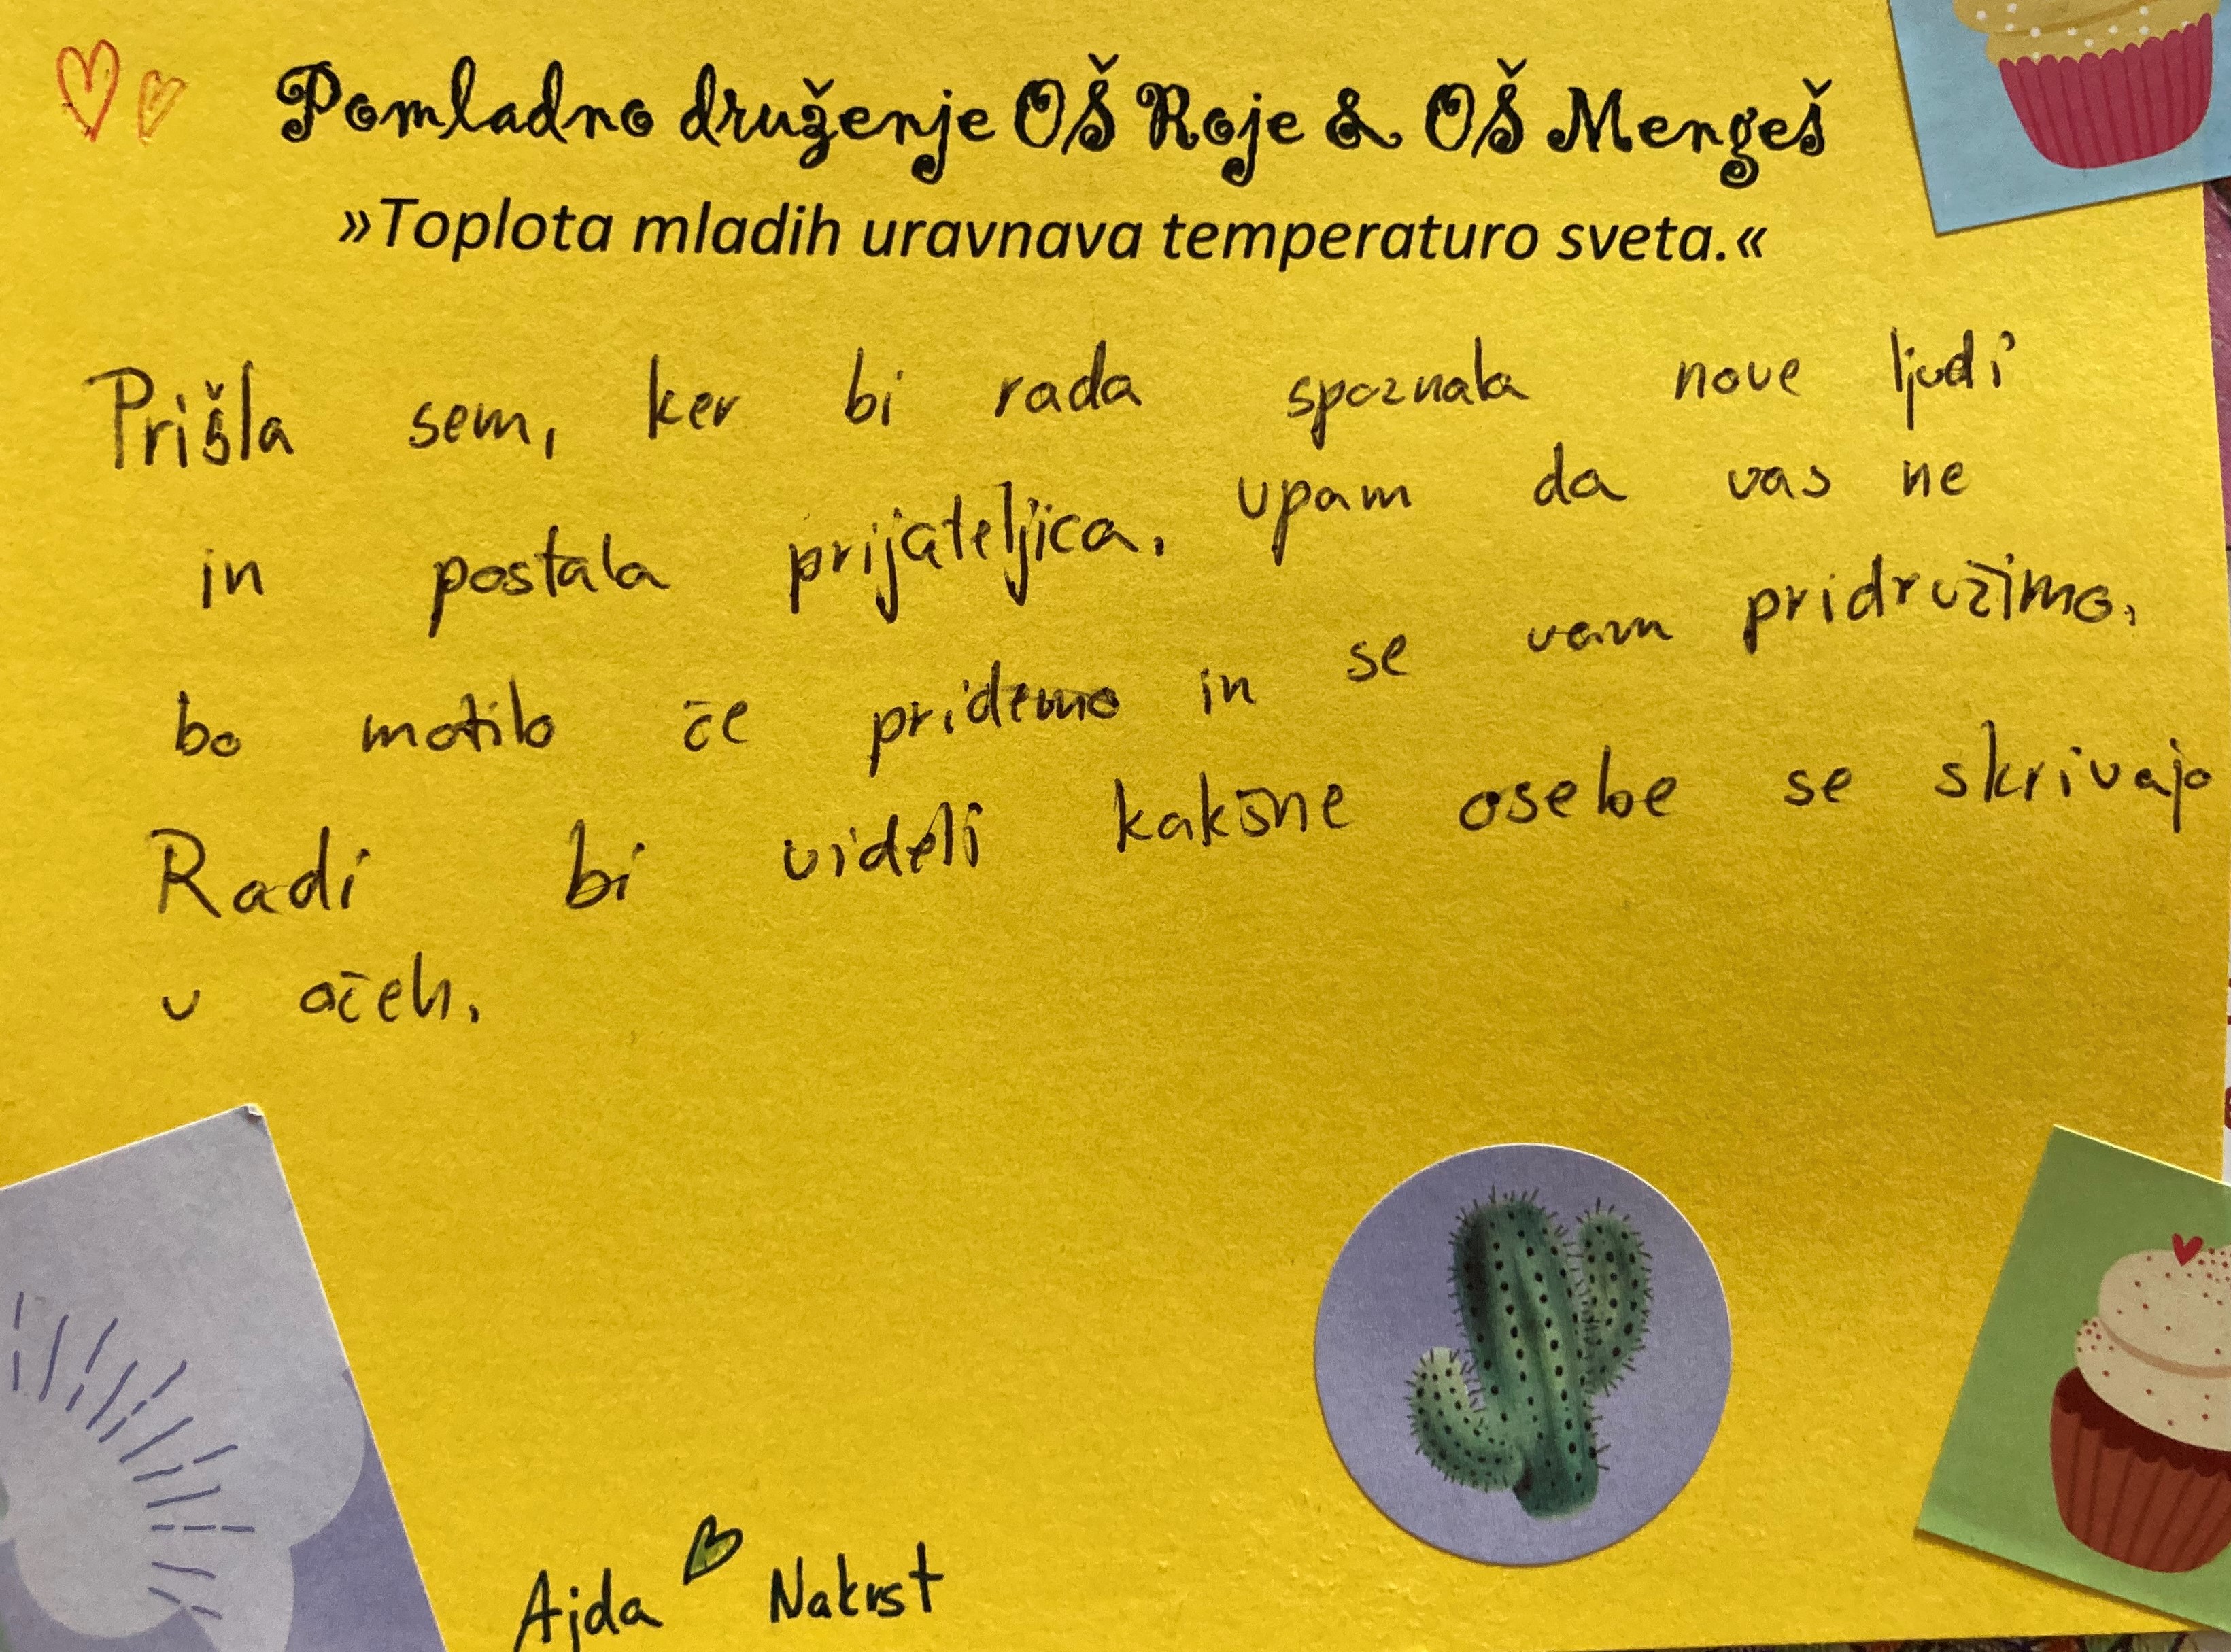 Pomladno druženje OŠ Roje & OŠ Mengeš
»Toplota mladih uravnava temperaturo sveta.«
Prišla sem, ker bi rada spoznala nove ljudi
in postala prijateljica. upam da vas ne
bo motilo če pridemo in se vam pridružimo.
Radi bi videli kakšne osebe se skrivajo
v očeh.
Ajda Nakrst